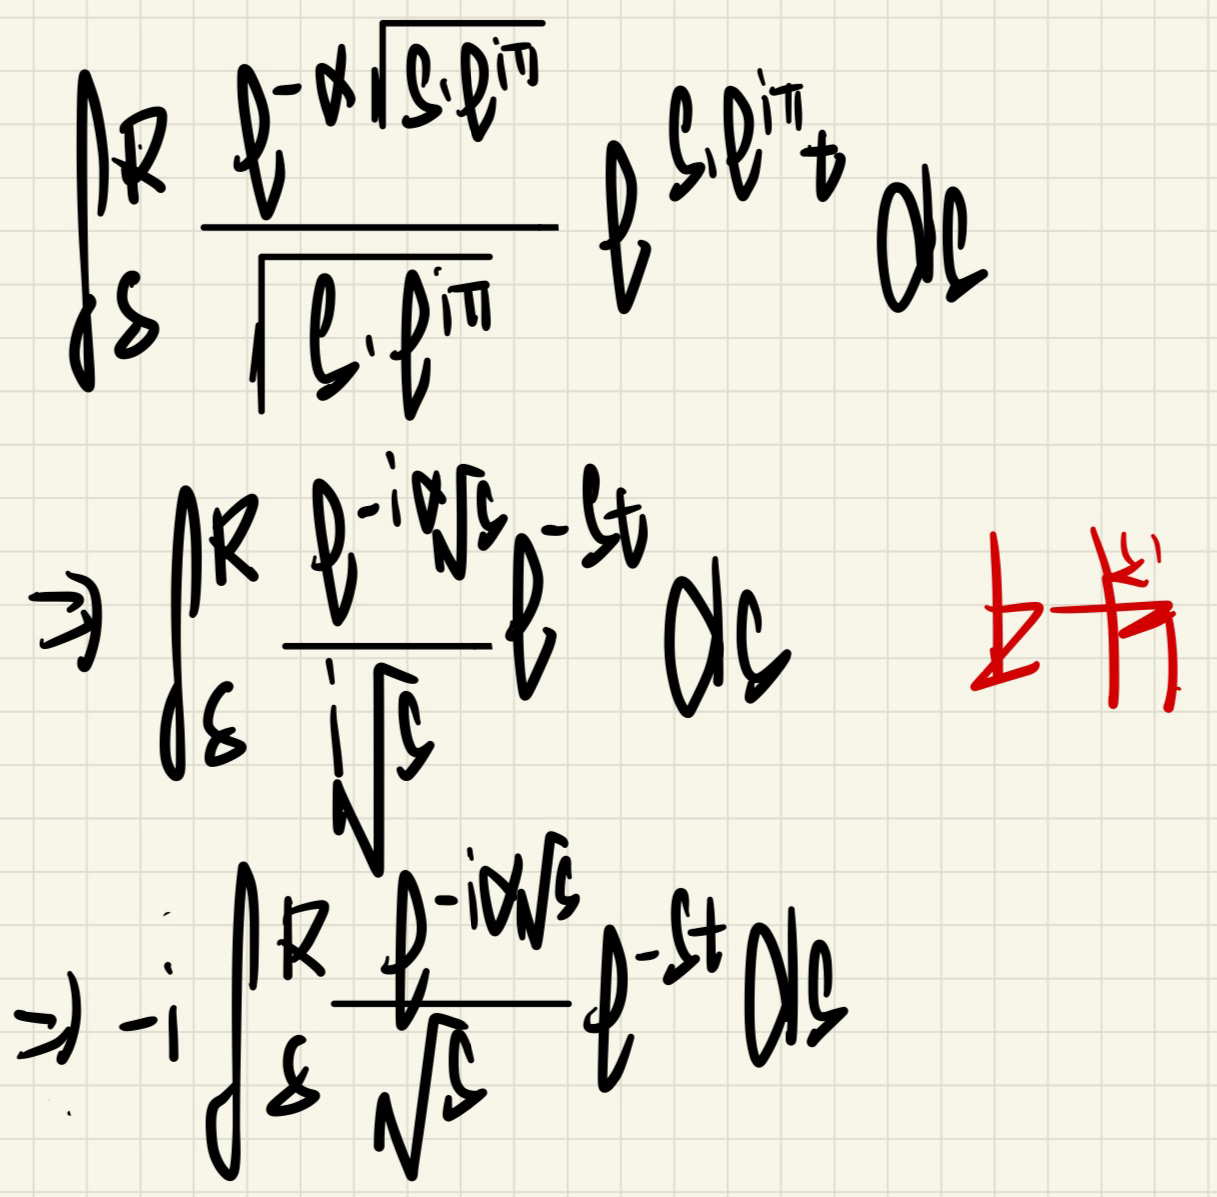 ∫_δ^R \frac{e^{-α\sqrt{s·e^{iπ}}}}{\sqrt{s·e^{iπ}}} e^{s·e^{iπ}t} ds
⇒ ∫_δ^R \frac{e^{-iα\sqrt{s}}}{i\sqrt{s}} e^{-st} ds
⇒ -i ∫_δ^R \frac{e^{-iα\sqrt{s}}}{\sqrt{s}} e^{-st} ds